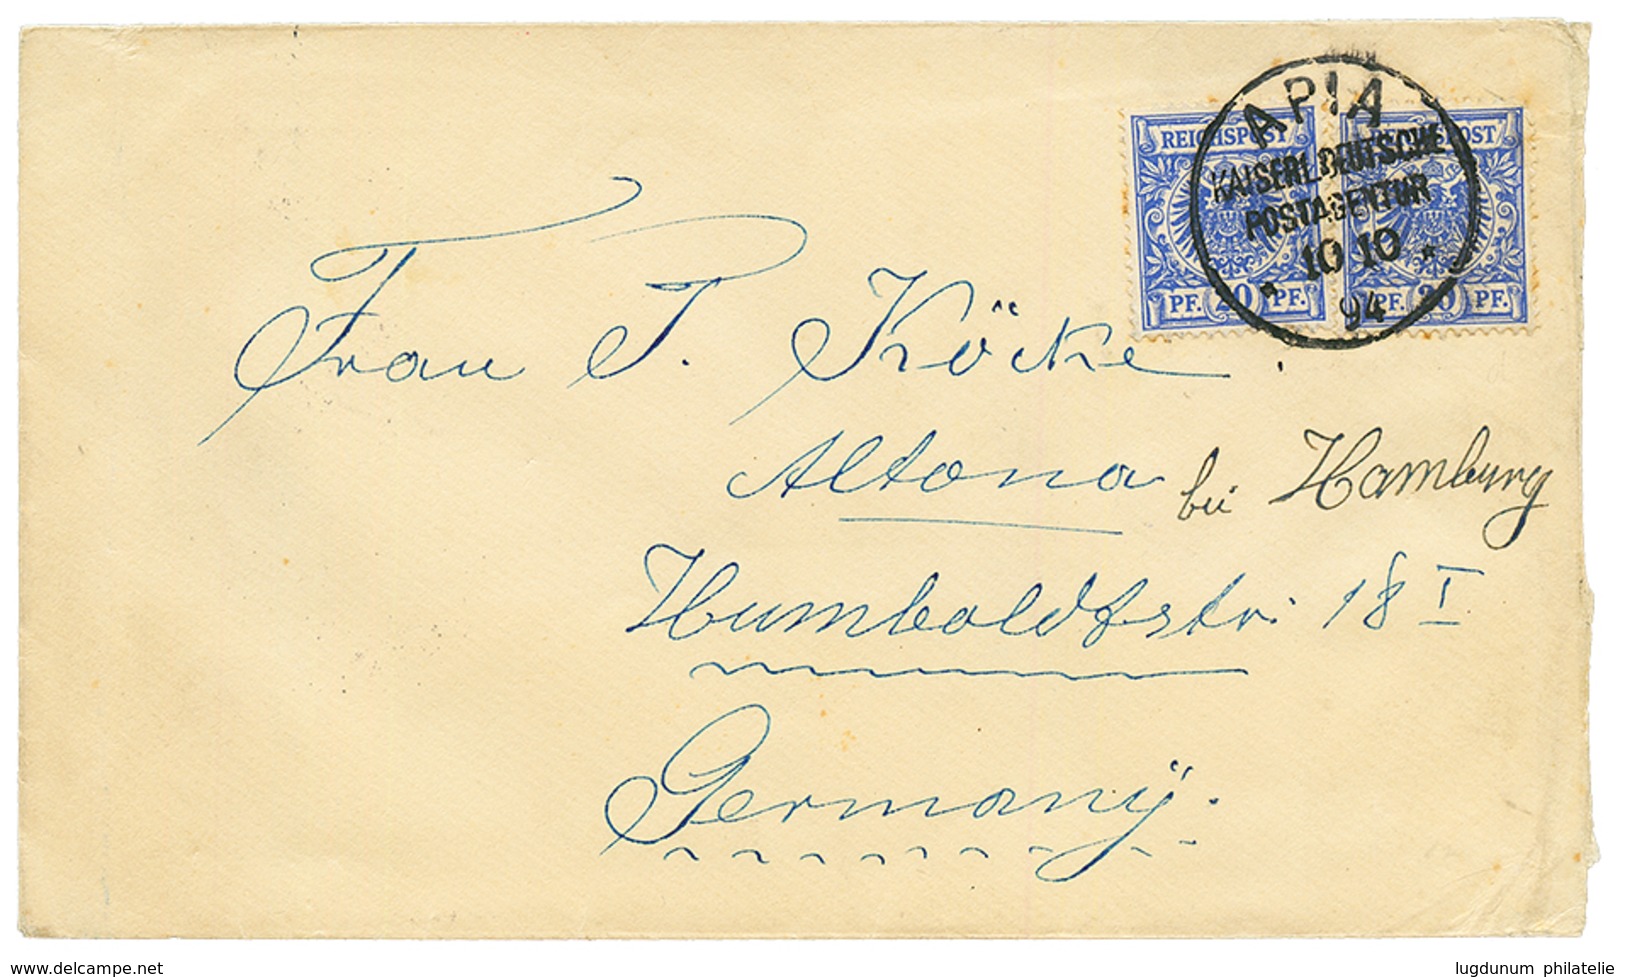 APIA
KAISERL. DEUTSCHE
POSTAGENTUR
10 10
94
REICHSPOST
PF. 20 PF.
REICHSPOST
PF. 20 PF.
Frau P. Köcke.
Altona bei Hamburg
Humboldtstr. 18 I
Germanÿ.
www.delcampe.net
lugdunum philatelie